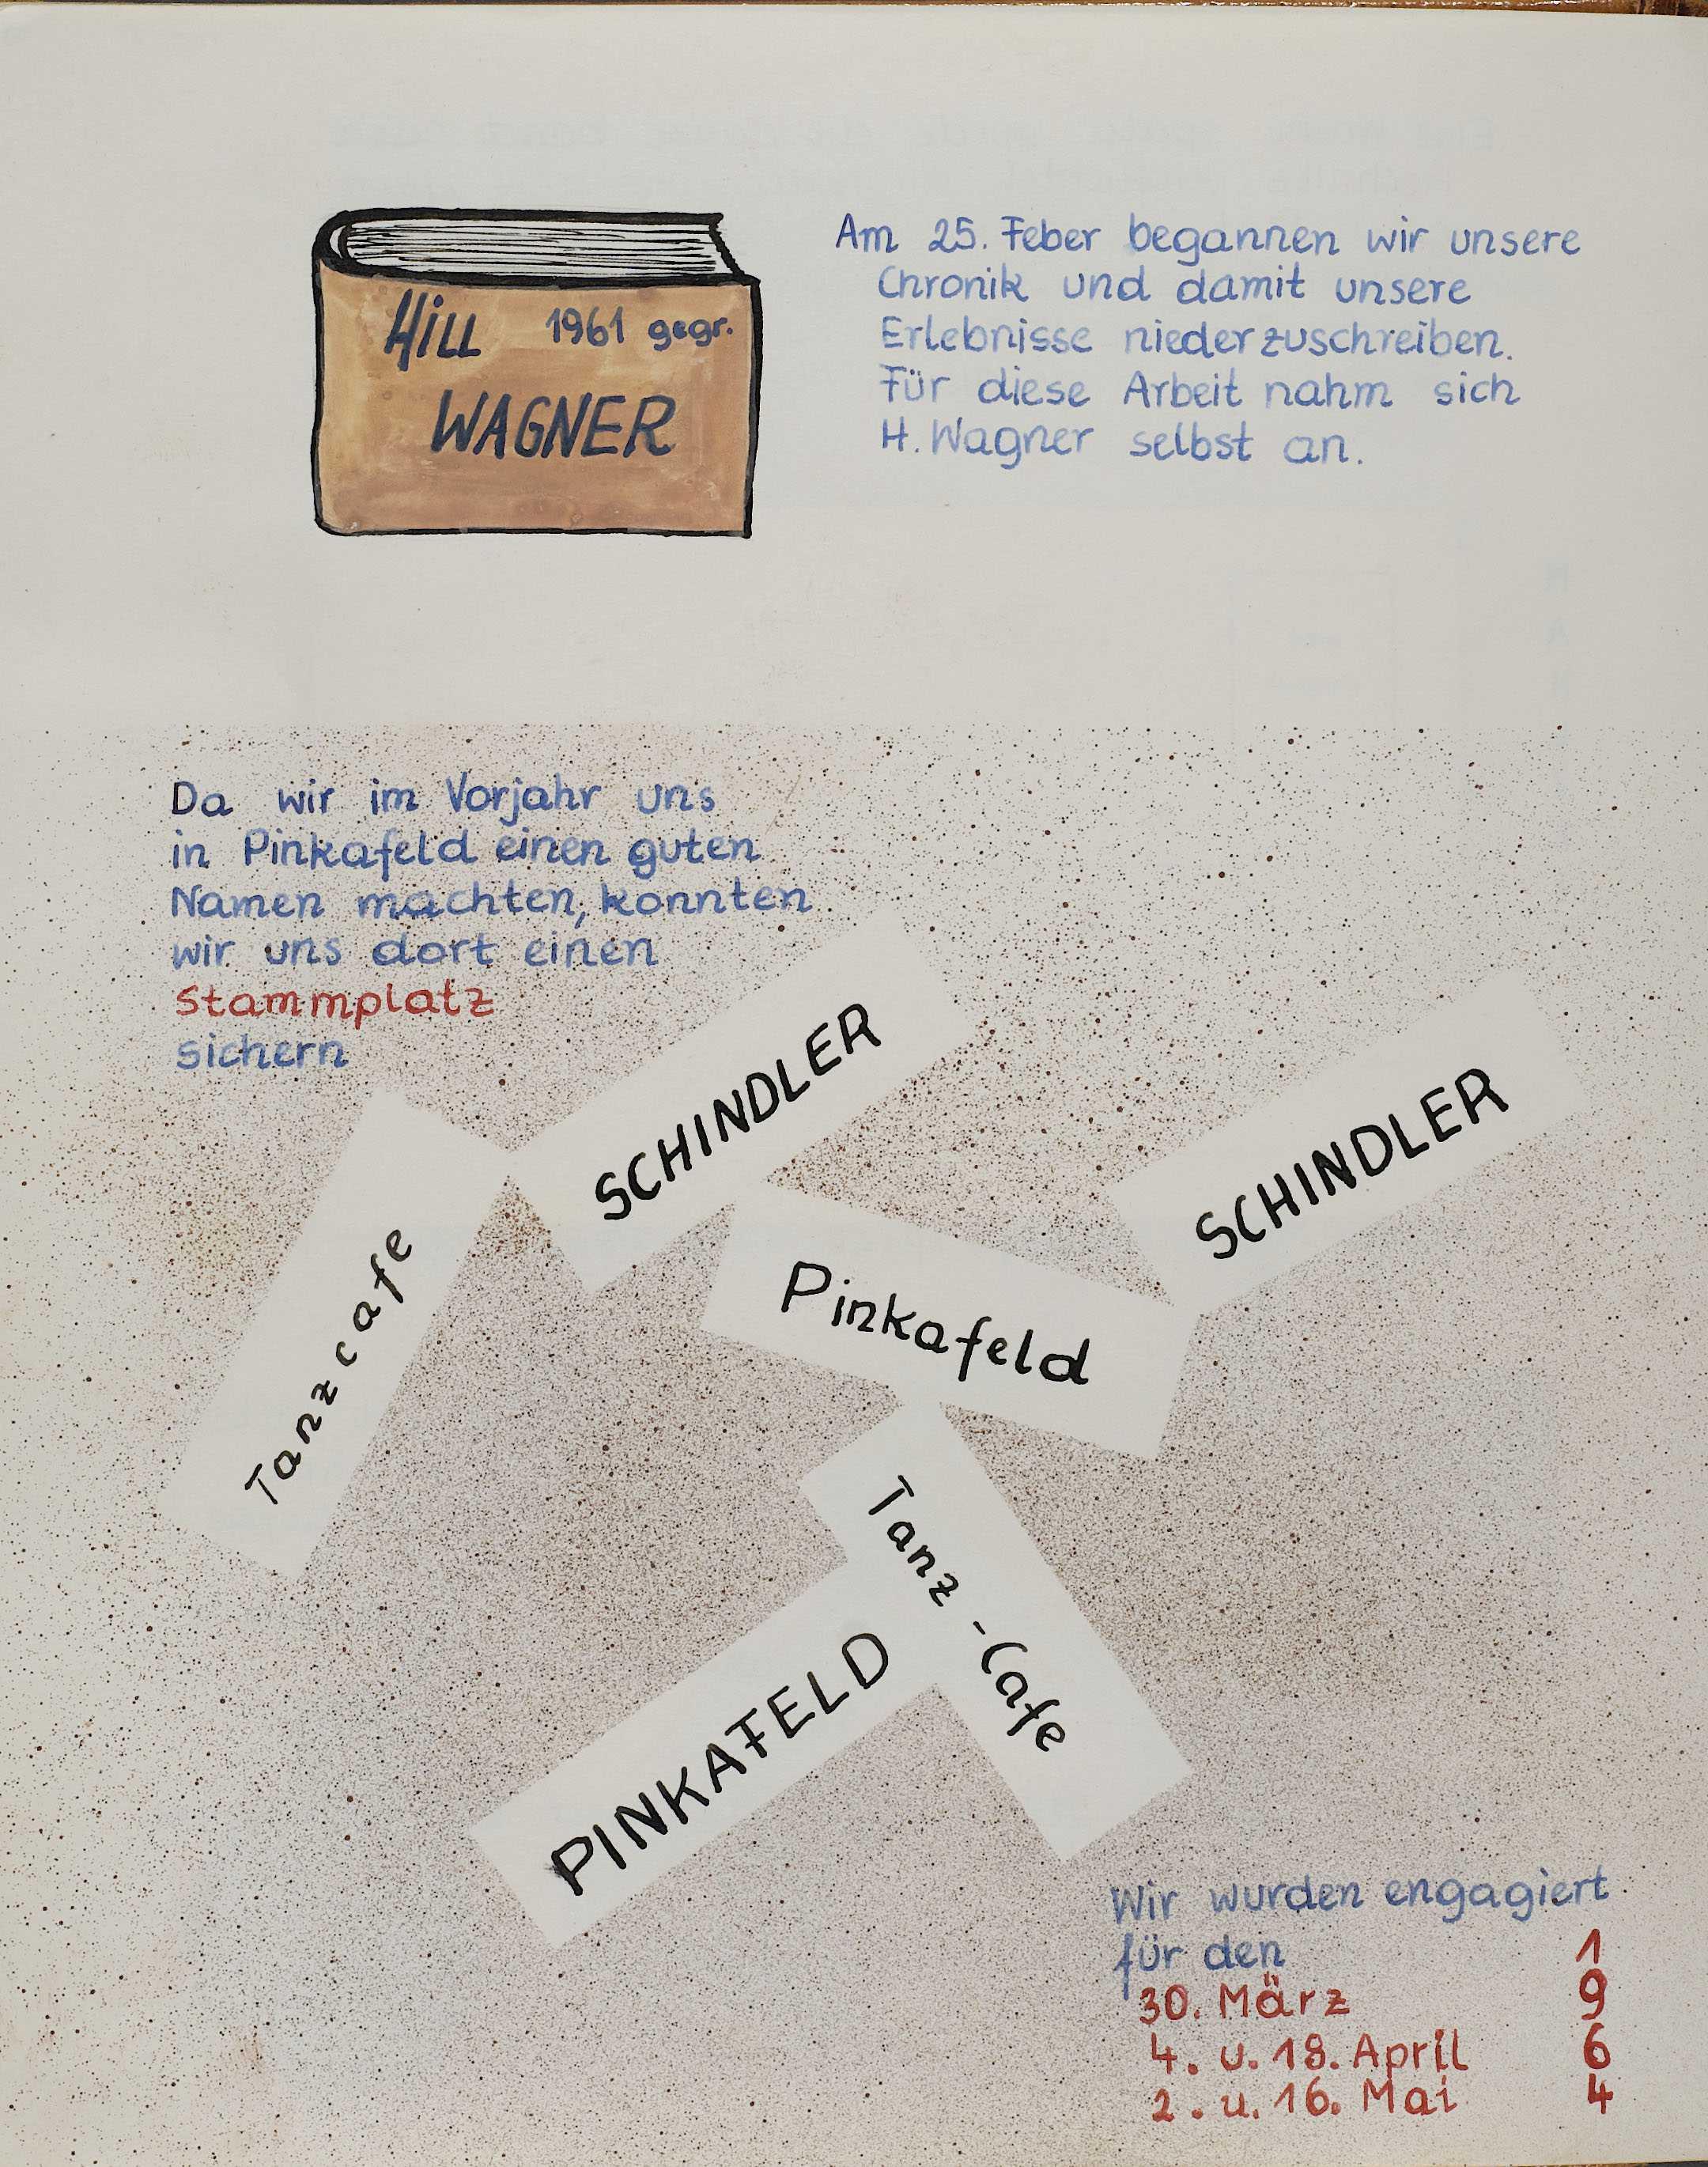 Am 25. Feber begannen wir unsere
Chronik und damit unsere
Erlebnisse niederzuschreiben.
Für diese Arbeit nahm sich
H. Wagner selbst an.
HILL 1961 gegr.
WAGNER
Da wir im Vorjahr uns
in Pinkafeld einen guten
Namen machten, konnten
wir uns dort einen
Stammplatz
sichern
SCHINDLER
SCHINDLER
Tanzcafe
Pinkafeld
Tanz-Cafe
PINKAFELD
Wir wurden engagiert
für den
30. März
4. u. 18. April
2. u. 16. Mai
1
9
6
4